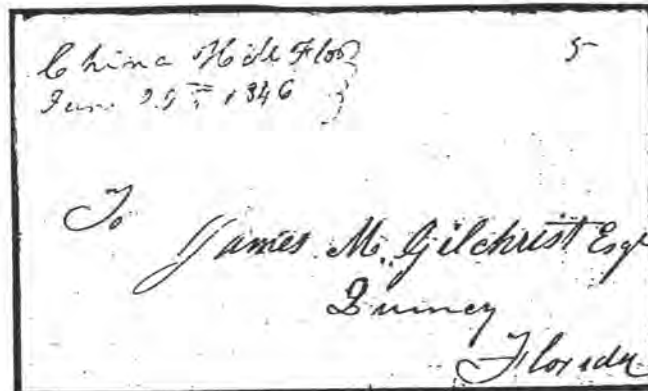 China Hill Flod 5
Jan. 25th 1846
To
James M. Gilchrist Esqr
Quincy
Florida